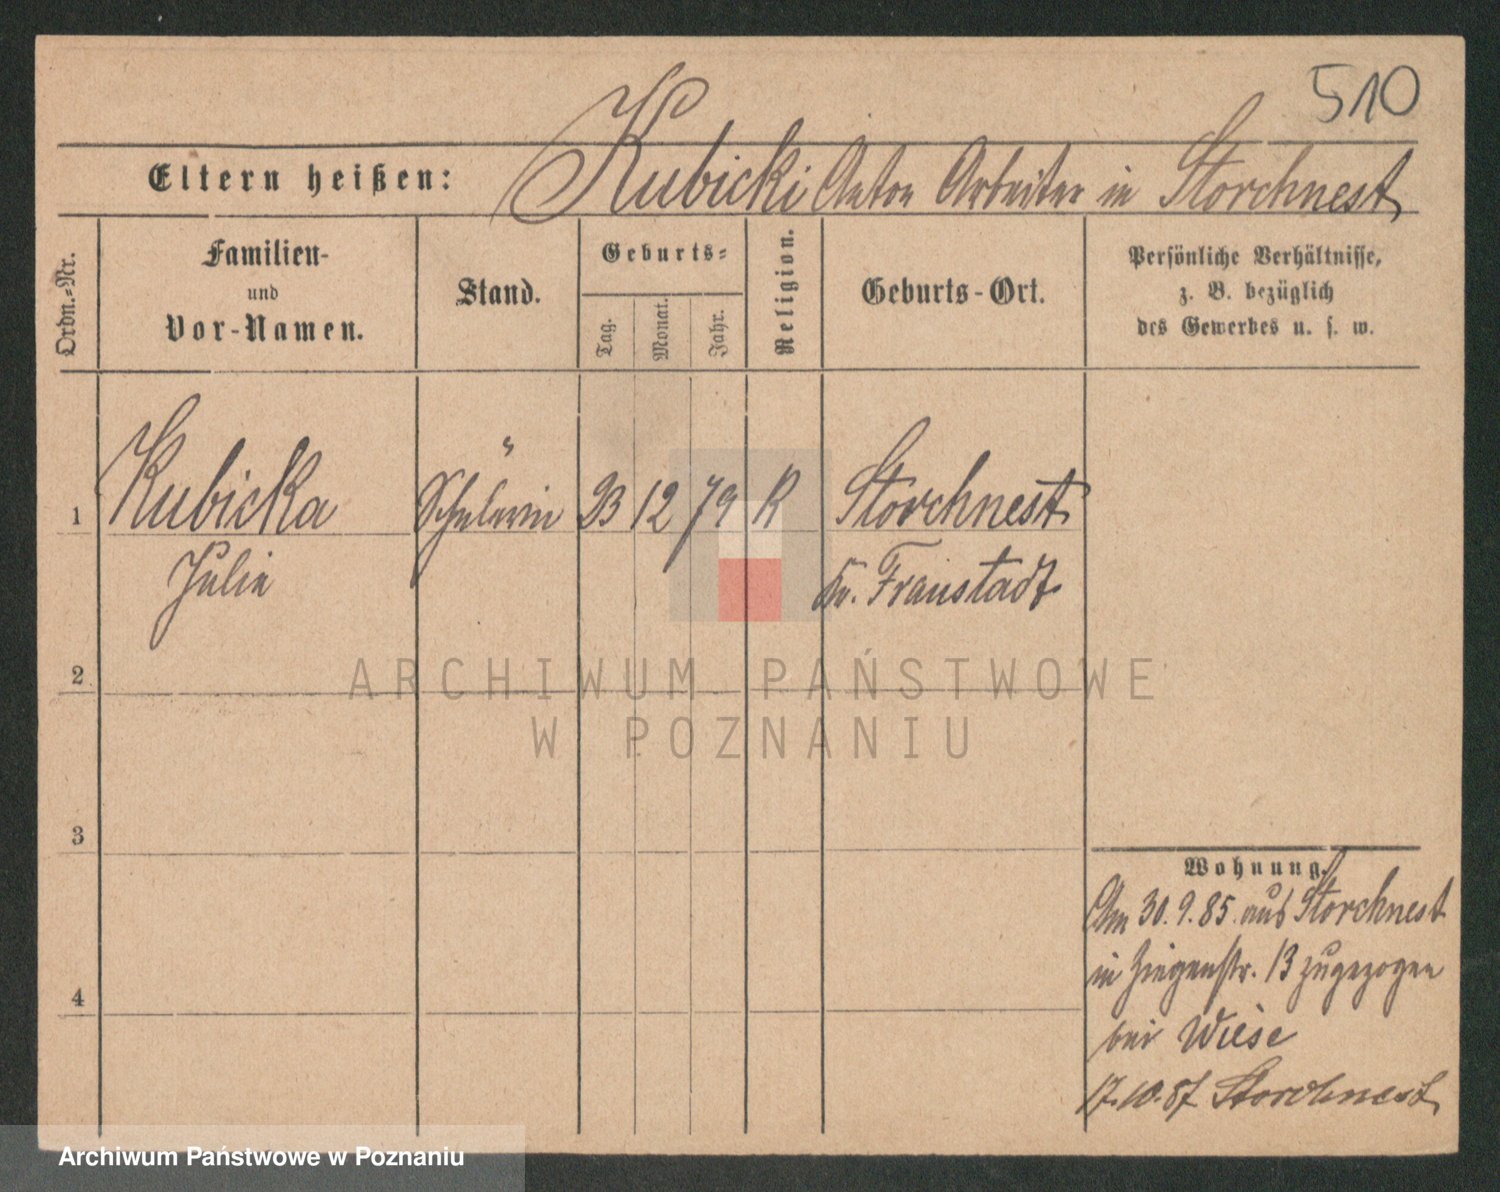 510
Eltern heißen: Kubicki Anton Arbeiter in Storchnest
Ordn.-Nr.
Familien-
und
Vor-Namen.
Stand.
Geburts-
Tag.
Monat.
Jahr.
Religion.
Geburts-Ort.
Persönliche Verhältnisse,
z. B. bezüglich
des Gewerbes u. s. w.
1 Kubicka Schülerin 23 12 79 K Storchnest
Julie Kr. Fraustadt
2
3
4
Wohnung.
Am 30.9.85. aus Storchnest
in Ziegenstr. 13 zugezogen
bei Wiese
17.10.87 Storchnest
ARCHIWUM PAŃSTWOWE
W POZNANIU
Archiwum Państwowe w Poznaniu